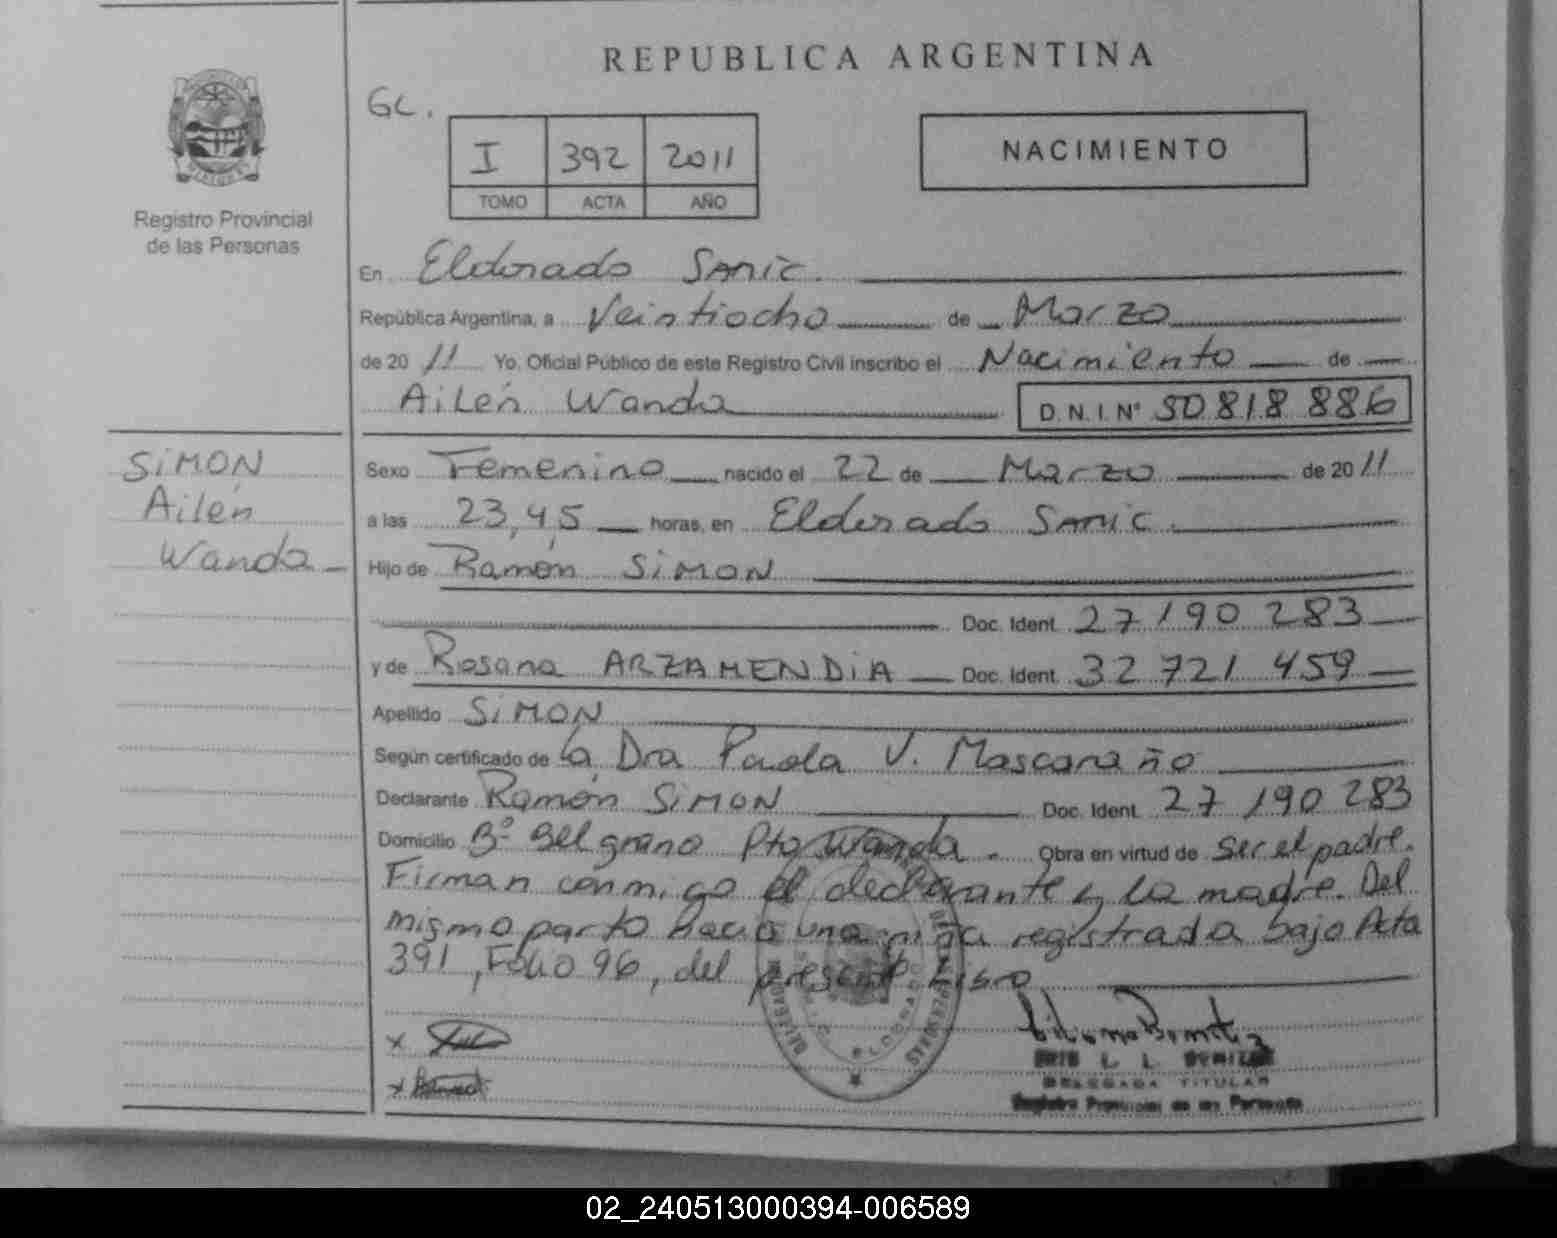 REPUBLICA ARGENTINA
GC.
I 392 2011
TOMO ACTA AÑO
NACIMIENTO
Registro Provincial
de las Personas
En Eldorado SAMIC.
República Argentina, a Veintiocho de Marzo
de 2011 Yo, Oficial Público de este Registro Civil inscribo el Nacimiento de
Ailén Wanda D.N.I. Nº 50 818 886
SiMON
Ailén
Wanda
Sexo Femenino nacido el 22 de Marzo de 2011
a las 23,45 horas, en Eldorado SAMIC.
Hijo de Ramón SiMON
Doc. Ident. 27 190 283
y de Rosana ARZAMENDiA Doc. Ident. 32 721 459
Apellido SiMON
Según certificado de la Dra Paola V. Mascaraño
Declarante Ramón SiMON Doc. Ident. 27 190 283
Domicilio Bº Belgrano Pto Wanda. Obra en virtud de ser el padre.
Firman conmigo el declarante y la madre. Del
mismo parto nació una niña registrada bajo Acta
391, Folio 96, del presente Libro
x
x
DELEGADA TITULAR
Registro Provincial de las Personas
ELDORADO
02_240513000394-006589